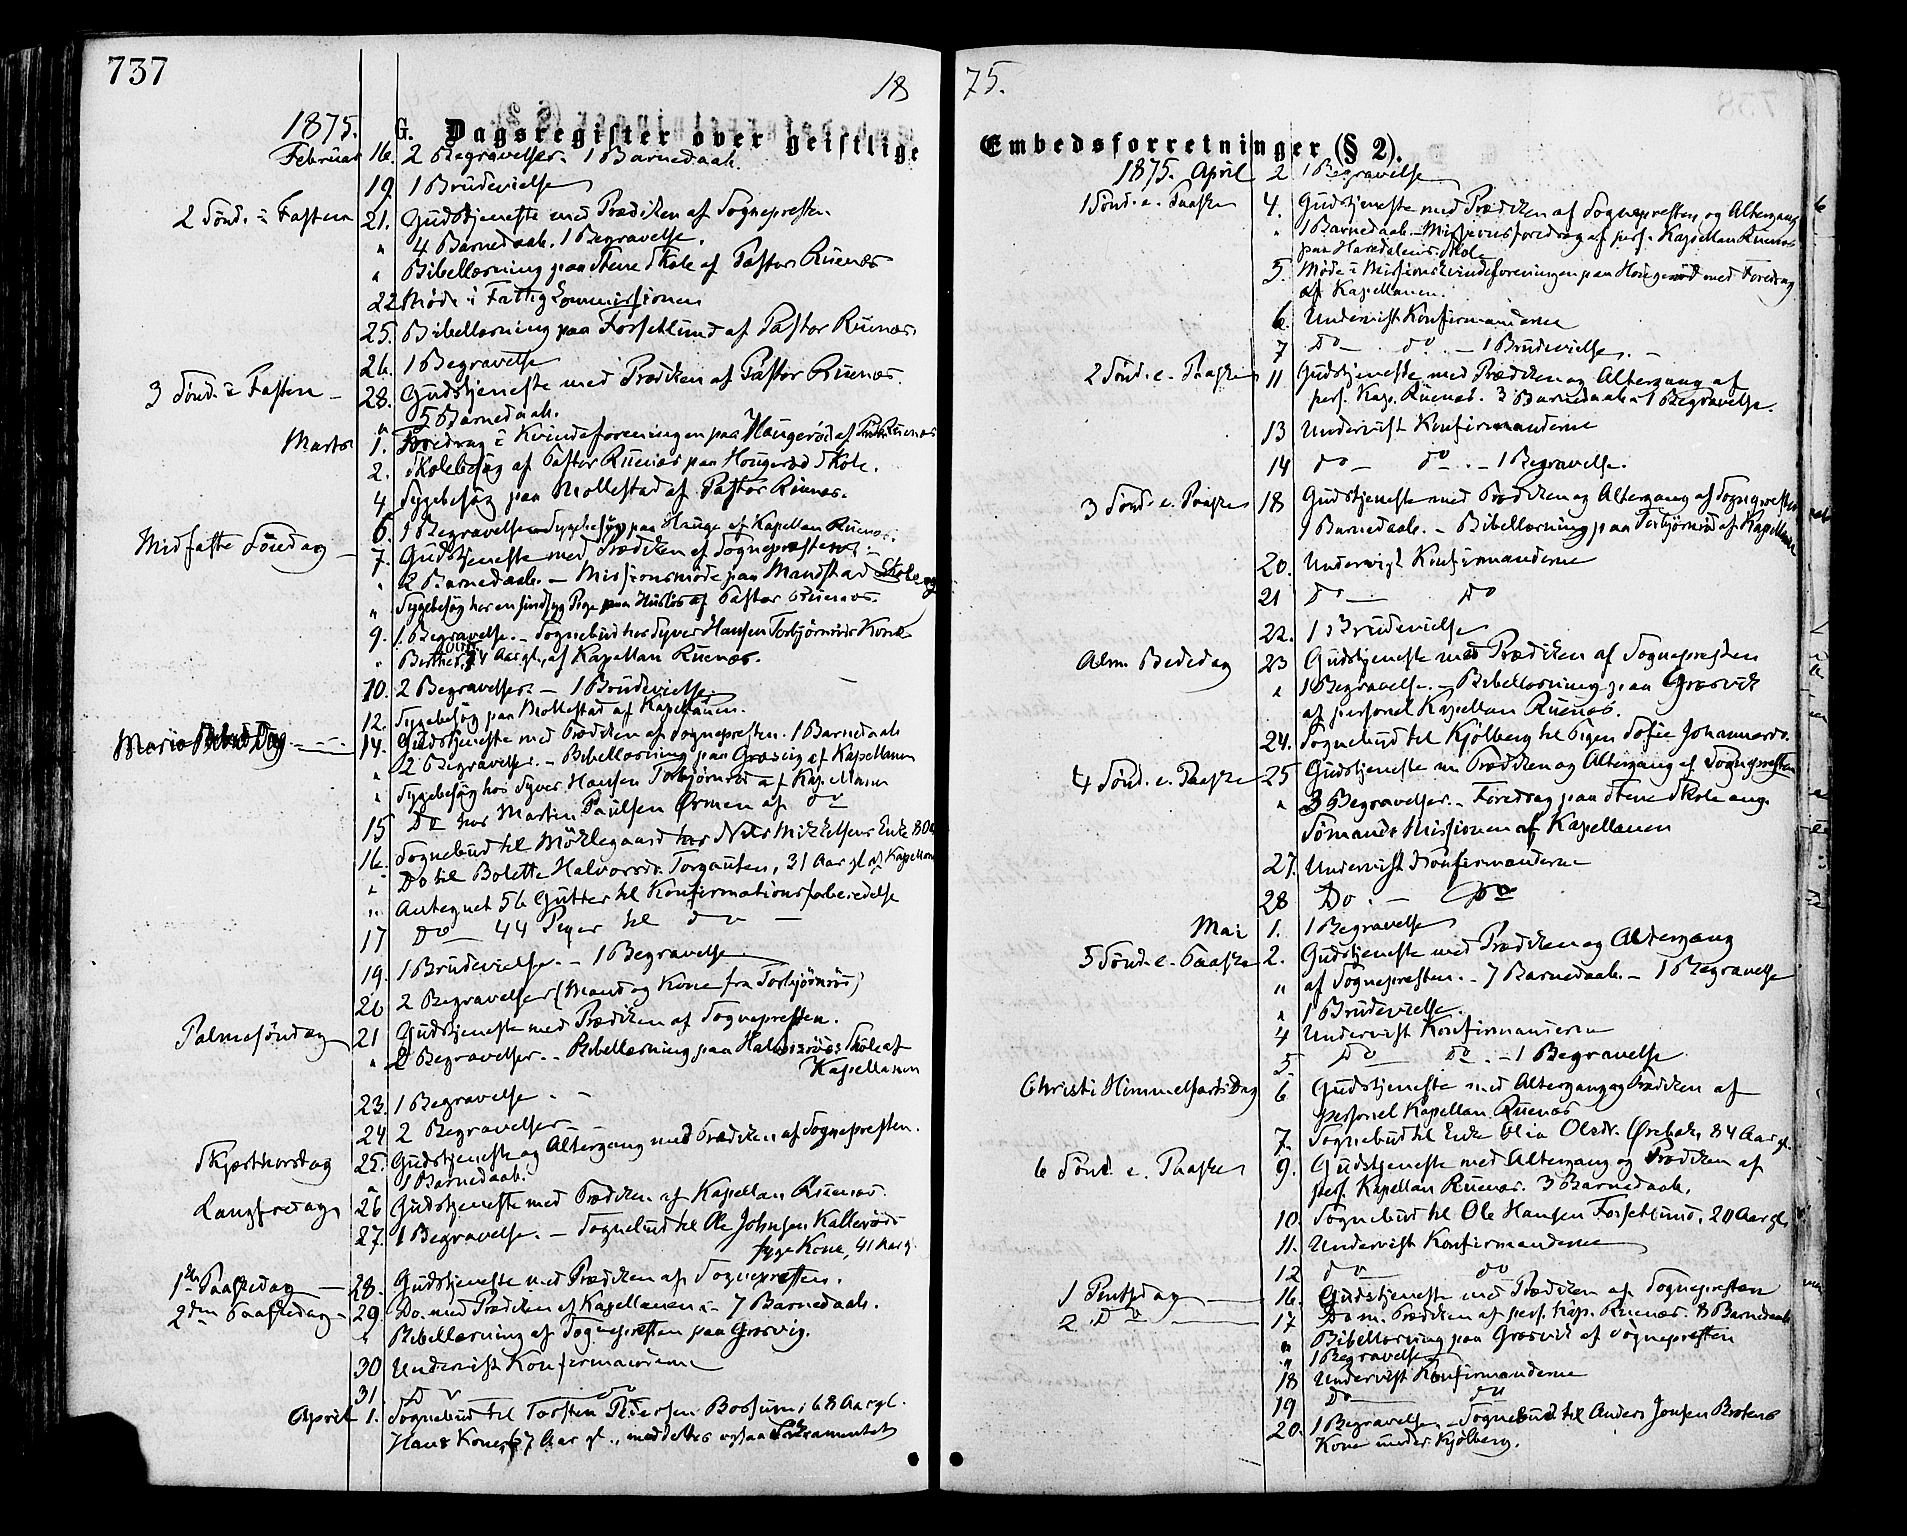 737
18
1875. G. Dagsregister over geistlige
Februar 16. 2 Begravelser. 1 Barnedaab.
19. 1 Brudevielse
2 Sønd. i Fasten 21. Gudstjeneste med Prædiken af Sognepresten.
" 4 Barnedaab. 1 Begravelse.
" Bibellæsning paa Stene Skole af Pastor Ruenæs
22. Møde i Fattigkommissionen
25. Bibellæsning paa Forsetlund af Pastor Ruenæs.
26. 1 Begravelse
3 Sønd. i Fasten – 28. Gudstjeneste med Prædiken af Pastor Ruenæs.
" 5 Barnedaab.
Marts 1. Foredrag i Kvindeforeningen paa Haugerød af Pastor Ruenæs
2. Skolebesøg af Pastor Ruenæs paa Hougerød Skole.
4 Sygebesøg paa Mollestad af Pastor Ruenæs.
6. 1 Begravelse – Sygebesøg paa Hauge af Kapellan Ruenæs.
Midfaste Søndag – 7. Gudstjeneste med Prædiken af Sognepresten. –
" 2 Barnedaab. – Missionsmøde paa Mandstad Skole og
" Sygebesøg hos en sindssyg Pige paa af Pastor Ruenæs.
9. 1 Begravelse. – Sognebud hos Syver Hansen Torbjørnrøds Kone
" 74 Aar gl., af Kapellan Ruenæs.
10. 2 Begravelser – 1 Brudevielse. –
12. Sygebesøg paa Mollestad af Kapellanen.
Mariæ Bebud. Dag – 14. Gudstjeneste med Prædiken af Sognepresten. 1 Barnedaab
" 2 Begravelser. – Bibellæsning paa Græsvig af Kapellanen
" Sygebesøg hos Syver Hansen Torbjørnrød af Kapellanen
15 Do hos Martin Paulsen Ørmen af do
16. Sognebud til Mörklegaard hos Nils Mikkelsens Enke 80 Aar
" Do til Bolette Halvorsdr. Torgauten, 31 Aar gl. af Kapellanen
" Antegnet 56 Gutter til Konfirmationsforberedelse
17 Do – 44 Piger til do –
19. 1 Brudevielse. – 1 Begravelse.
20 2 Begravelser (Mand og Kone fra Torbjörnrød)
Palmesöndag 21 Gudstjeneste med Prædiken af Sognepresten.
" 2 Begravelser. – Bibellæsning paa Skole af
Kapellanen
23. 1 Begravelse. –
24 2 Begravelser –
Skjærthorsdag 25. Gudstjeneste og Altergang med Prædiken af Sognepresten.
" 1 Barnedaab.
Langfredag 26 Gudstjeneste med Prædiken af Kapellan Ruenæs.
27. 1 Begravelse. – Sognebud til Ole Johnsen Kallerøds
syge Kone, 41 Aar gl.
1ste Paaskedag – 28. Gudstjeneste med Prædiken af Sognepresten.
2den Paaskedag – 29. Do. med Prædiken af Kapellanen – 7 Barnedaab.
" Bibellæsning af Sognepresten paa Græsvig.
30 Undervist Konfirmanderne
31 Do do
April 1. Sognebud til Torsten Pedersen Bossum, 68 Aar gl.
Hans Kone, 67 Aar gl., meddeltes ogsaa Sakramentet
75.
Embedsforretninger (§ 2).
1875. April 2 1 Begravelse
1 Sönd. e. Paaske 4. Gudstjeneste med Prædiken af Sognepresten og Altergang
" 1 Barnedaab. – Missionsforedrag af pers. Kapellan Ruenæs
paa Skole
5. Møde i Missionskvindeforeningen paa Hougerød med Foredrag
af Kapellanen.
6. Undervist Konfirmanderne
7 Do – do. – 1 Brudevielse. –
2 Sönd. e. Paaske 11 Gudstjeneste med Prædiken og Altergang af
pers. Kap. Ruenæs. 3 Barnedaab – 1 Begravelse.
13 Undervist Konfirmanderne
14 do – do – 1 Begravelse.
3 Sönd. e. Paaske 18 Gudstjeneste med Prædiken og Altergang af Sognepresten
1 Barnedaab. – Bibellæsning paa Torbjørnrød af Kapellanen
20. Undervist Konfirmanderne
21 Do – Do
22. 1 Brudevielse
Alm. Bededag 23 Gudstjeneste med Prædiken af Sognepresten
" 1 Begravelse. – Bibellæsning paa Græsvik
af personel Kapellan Ruenæs.
24. Sognebud til Kjölberg til Pigen Sofie Johannesdr.
4 Sönd. e. Paaske 25 Gudstjeneste m Prædiken og Altergang af Sognepresten
" 3 Begravelser. – Foredrag paa Stene Skole ang.
Sömands Missionen af Kapellanen
27. Undervist Konfirmanderne
28 Do. – Do
Mai 1. 1 Begravelse
5 Sönd. e. Paaske 2. Gudstjeneste med Prædiken og Altergang
" af Sognepresten. – 7 Barnedaab. – 1 Begravelse
" 1 Brudevielse.
4 Undervist Konfirmanderne
5 Do – do. – 1 Begravelse
Christi Himmelfarts Dag 6 Gudstjeneste med Altergang og Prædiken af
personel Kapellan Ruenæs
7. Sognebud til Enke Olia Olsdr. Ørebæk, 84 Aar gl.
6 Sönd. e. Paaske 9. Gudstjeneste med Altergang og Prædiken af
pers. Kapellan Ruenæs. 3 Barnedaab.
10. Sognebud til Ole Hansen Forsetlund, 20 Aar gl.
11. Undervist Konfirmanderne
12 do – do
1 Pintsdag – 16. Gudstjeneste med Prædiken af Sognepresten
2. Do – 17 Do m. Prædiken af pers. Kap. Ruenæs. 8 Barnedaab
" Bibellæsning paa Græsvik af Sognepresten
" 1 Begravelse
18 Undervist Konfirmanderne
19 Do – do
20. 1 Begravelse. – Sognebud til Anders Jensen Brotens
Kone under Kjölberg.